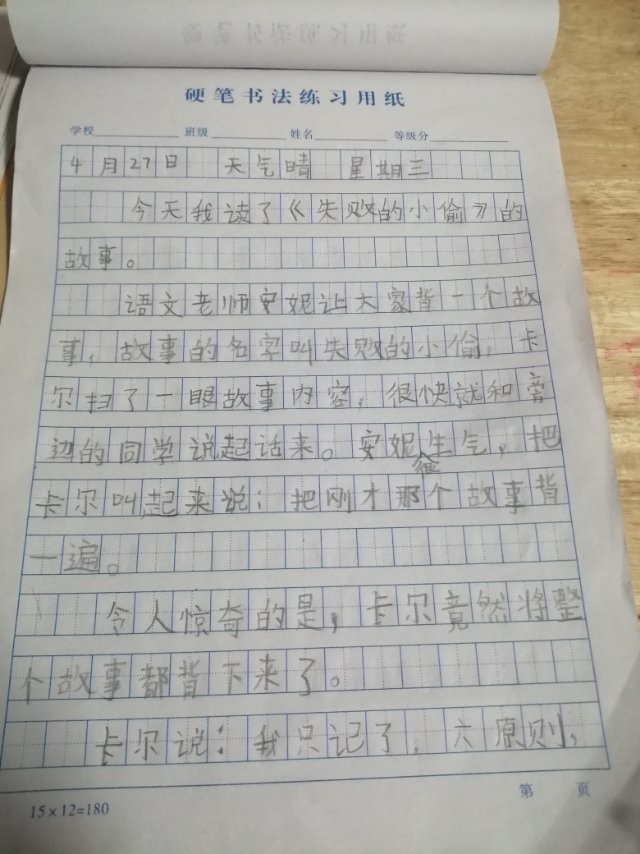 硬笔书法练习用纸
学校 班级 姓名 等级分
4月27日 天气晴 星期三
今天我读了《失败的小偷》的
故事。
语文老师安妮让大家背一个故
事，故事的名字叫失败的小偷，卡
尔扫了一眼故事内容，很快就和旁
边的同学说起话来。安妮很生气，把
卡尔叫起来说：把刚才那个故事背
一遍。
令人惊奇的是，卡尔竟然将整
个故事都背下来了。
卡尔说：我只记了，六原则，
15×12=180
第 页